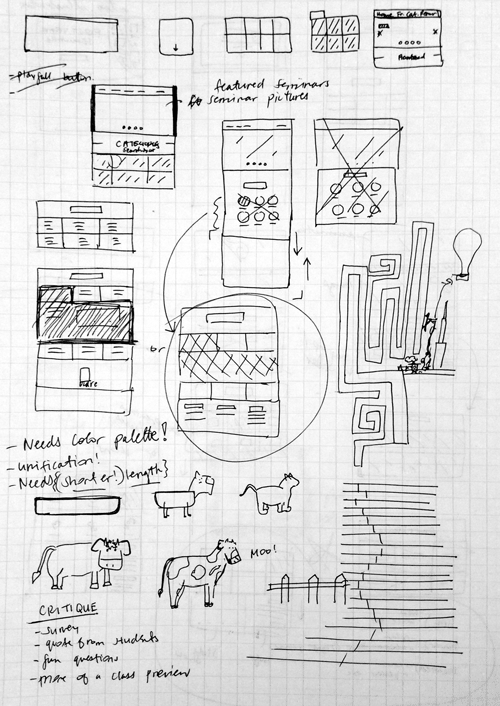 Home Fr. Cat. Remar
Moreband
- playfull button.
featured seminars
seminar pictures
CATEGORIES
or
- Needs color palette!
- unification!
- Needs {(shorter!) length}
MOO!
CRITIQUE
- survey
- quote from students
- fun questions
- more of a class preview